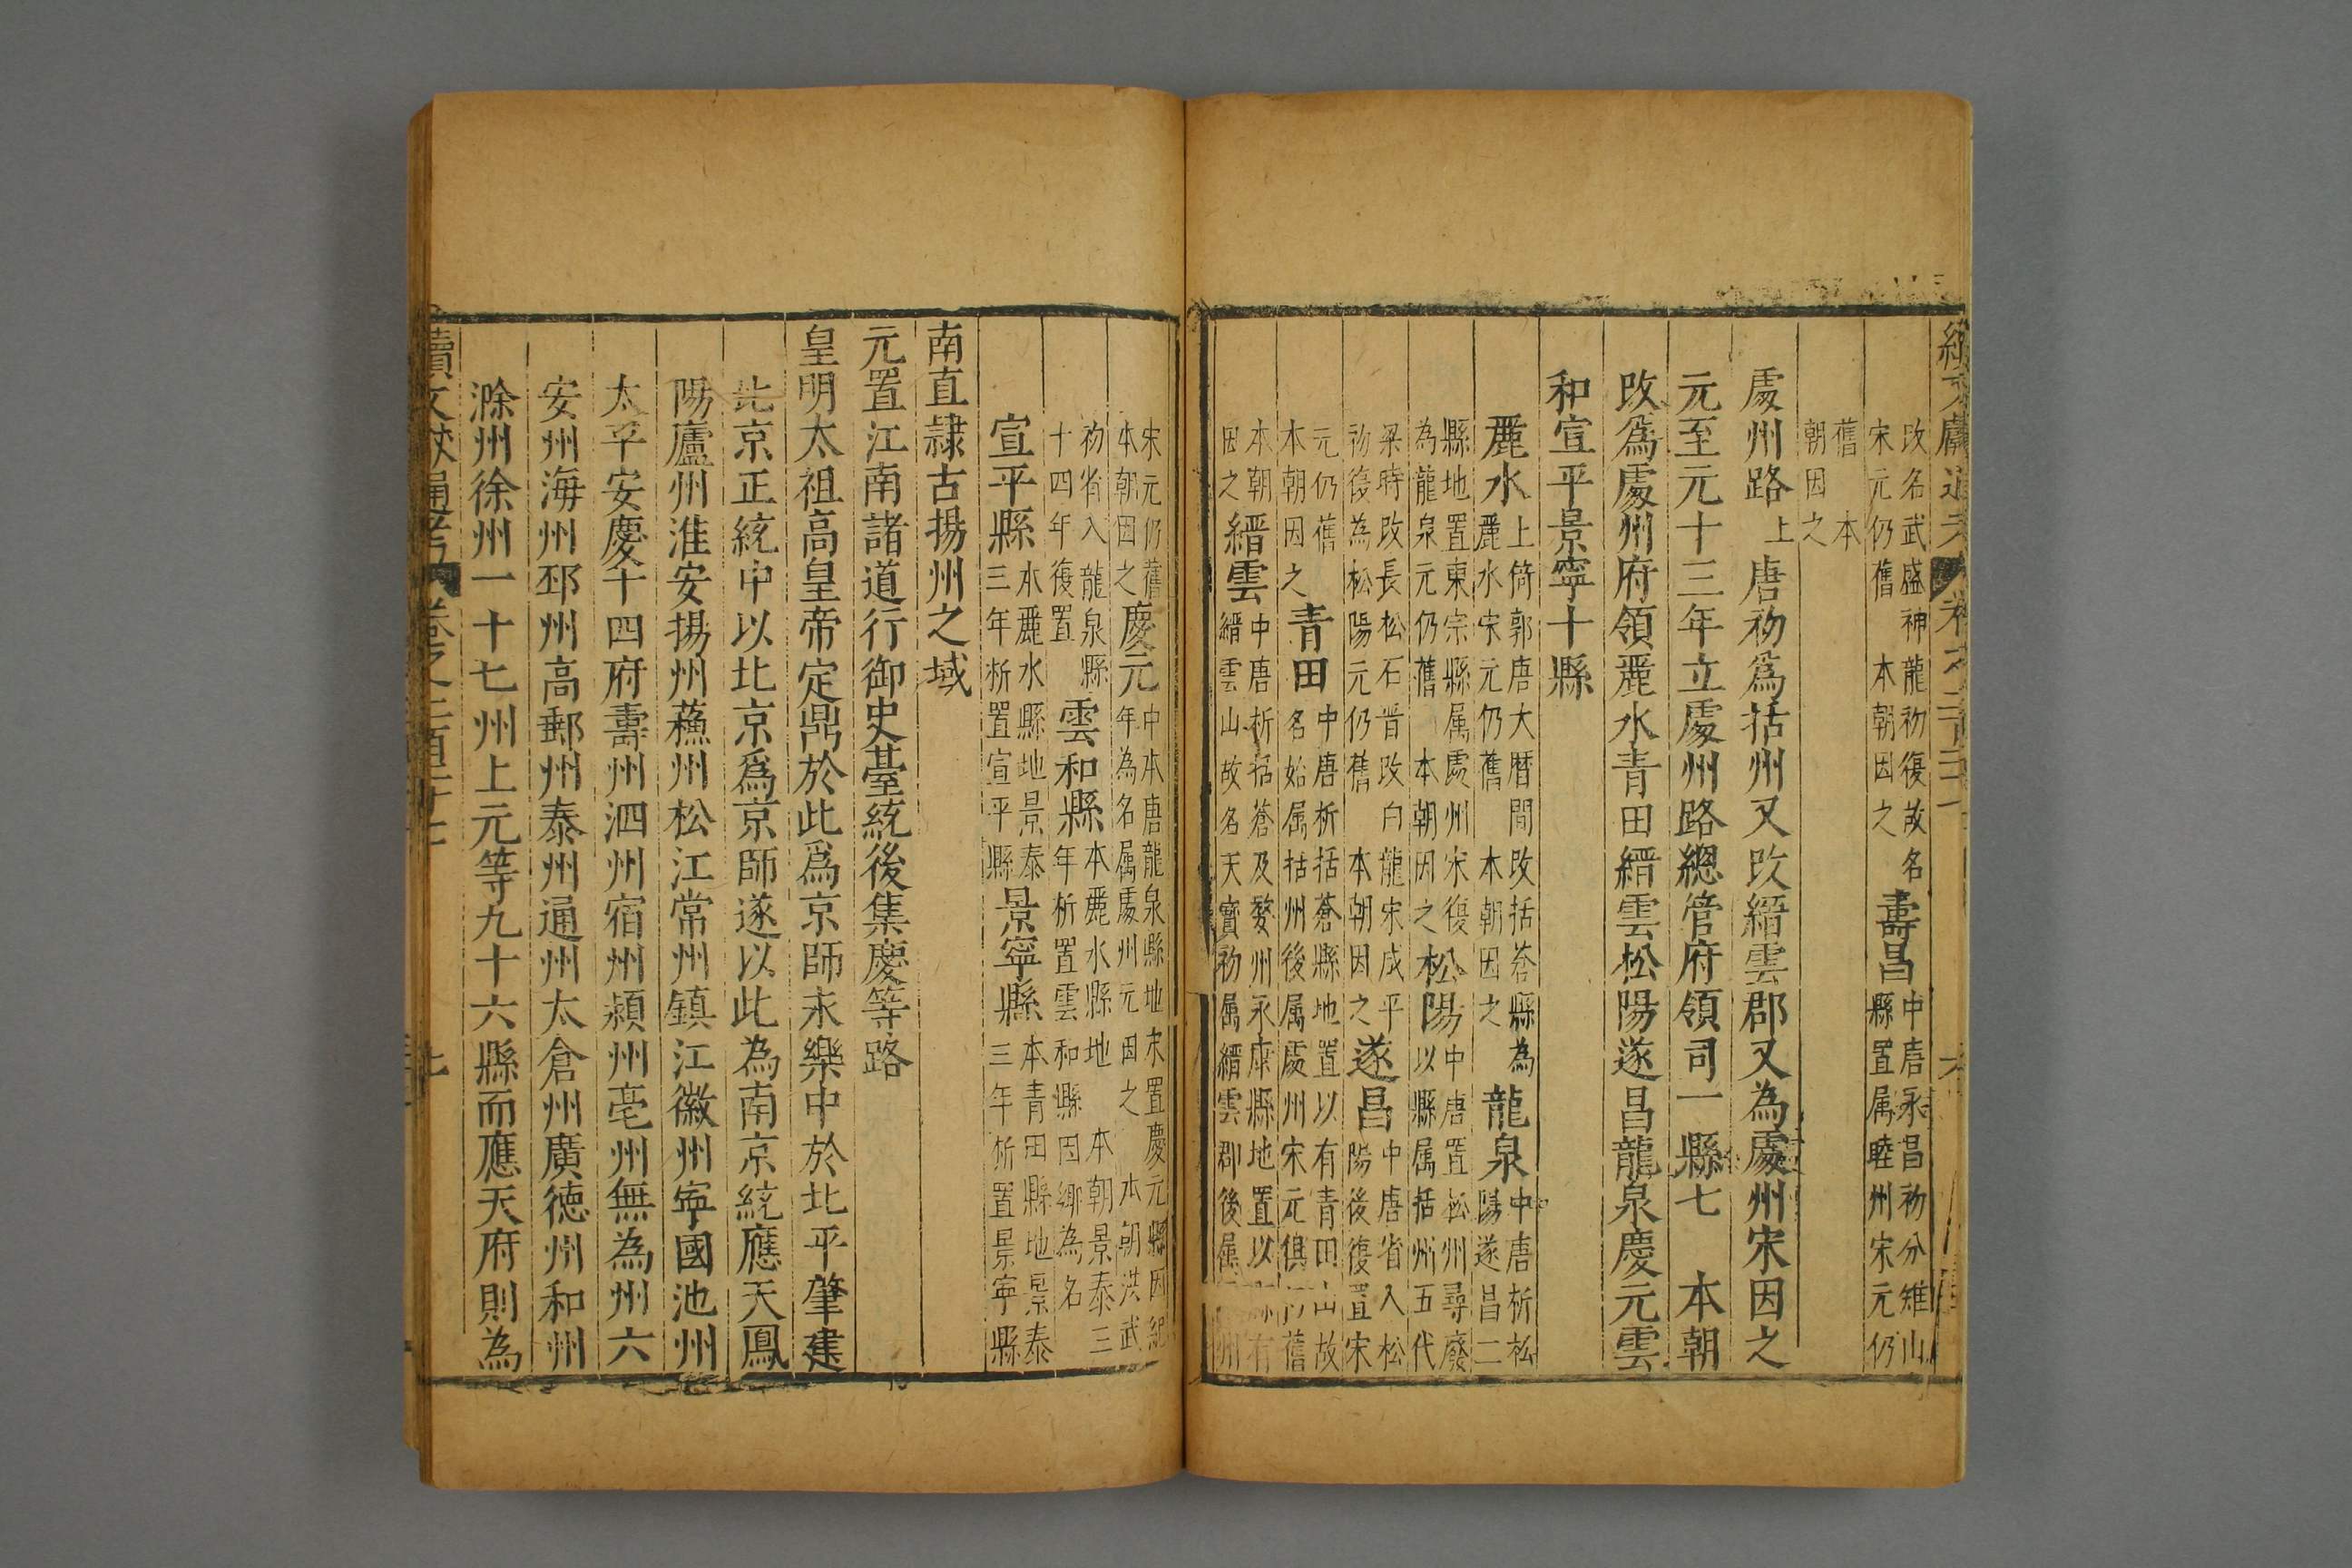 續文獻通考 卷之二百二十
改名武盛神龍初復故名
宋元仍舊 本朝因之
壽昌
中唐永昌初分雉山
縣置属睦州宋元仍
舊 本
朝因之
處州路上唐初爲括州又改縉雲郡又為處州宋因之
元至元十三年立處州路總管府領司一縣七 本朝
改爲處州府領麗水青田縉雲松陽遂昌龍泉慶元雲
和宣平景寧十縣
麗水
上倚郭唐大曆間改括蒼縣為
麗水宋元仍舊 本朝因之
龍泉
中唐析松
陽遂昌二
縣地置東宗縣属處州宋復
為龍泉元仍舊 本朝因之
松陽
中唐置松州尋廢
以縣属括州五代
梁時改長松石晉改白龍宋咸平
初復為松陽元仍舊 本朝因之
遂昌
中唐省入松
陽後復置宋
元仍舊
本朝因之
青田
中唐析括蒼縣地置以有青田山故
名始属括州後属處州宋元俱仍舊
本朝
因之
縉雲
中唐析括蒼及婺州永康縣地置以有
縉雲山故名天寶初属縉雲郡後属州
宋元仍舊
本朝因之
慶元
中本唐龍泉縣地宋置慶元縣因紀
年為名属處州元因之 本朝洪武
初省入龍泉縣
十四年復置
雲和縣
本麗水縣地 本朝景泰三
年析置雲和縣因鄉為名
宣平縣
本麗水縣地景泰
三年析置宣平縣
景寧縣
本青田縣地景泰
三年析置景寧縣
南直隷古揚州之域
元置江南諸道行御史臺統後集慶等路
皇明太祖高皇帝定鼎於此爲京師永樂中於北平肇建
北京正統中以北京爲京師遂以此為南京統應天鳳
陽廬州淮安揚州蘓州松江常州鎮江徽州寧國池州
太平安慶十四府壽州泗州宿州潁州亳州無為州六
安州海州邳州高郵州泰州通州太倉州廣德州和州
滁州徐州一十七州上元等九十六縣而應天府則為
續文獻通考 卷之二百二十 七